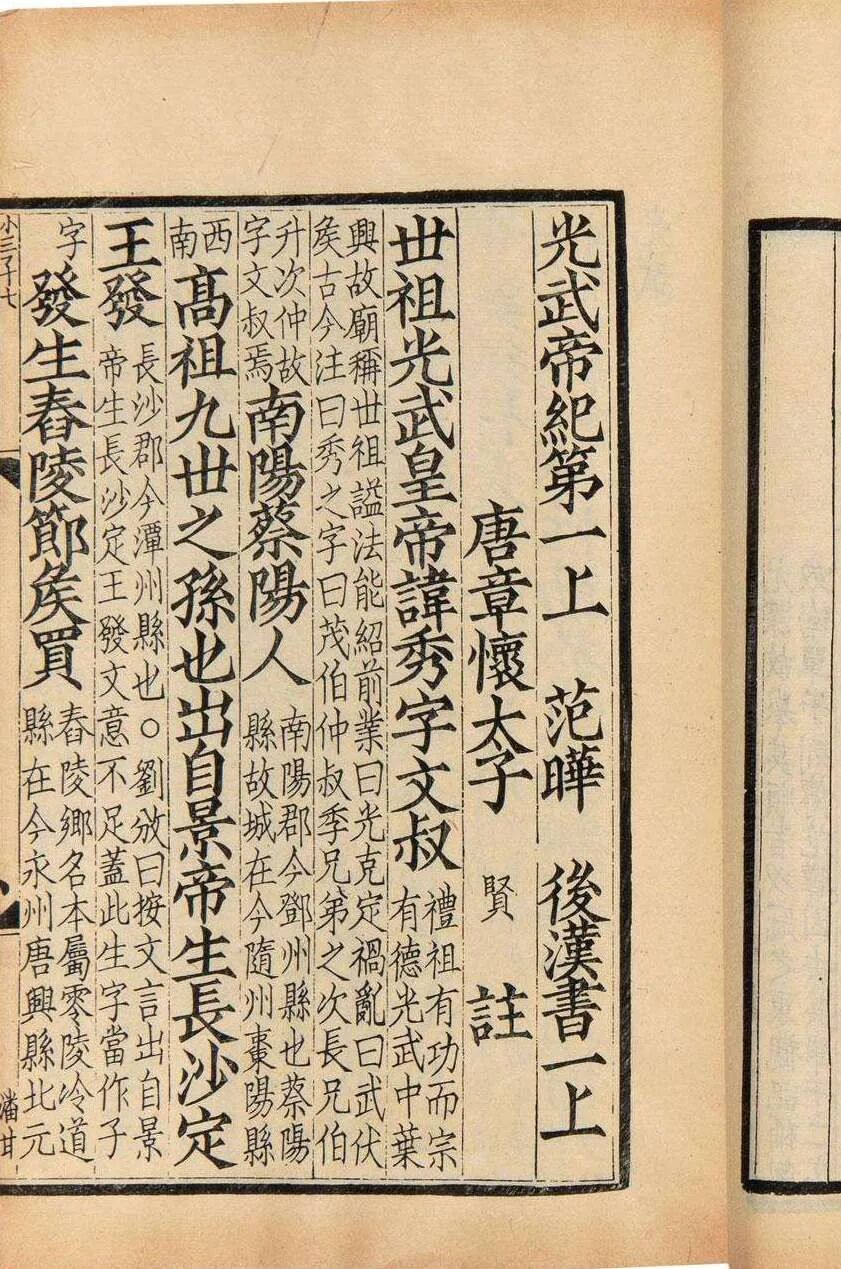 光武帝紀第一上 范曄 後漢書一上
唐章懷太子 賢 註
丗祖光武皇帝諱秀字文叔 禮祖有功而宗有德光武中葉
興故廟稱丗祖謚法能紹前業曰光克定禍亂曰武伏
矦古今注曰秀之字曰茂伯仲叔季兄弟之次長兄伯
升次仲故字文叔焉 南陽蔡陽人 南陽郡今鄧州縣也蔡陽縣故城在今隨州棗陽縣
西南 髙祖九丗之孫也出自景帝生長沙定
王發 長沙郡今潭州縣也○劉攽曰按文言出自景帝生長沙定王發文意不足蓋此生字當作子
字 發生舂陵節矦買 舂陵鄉名本屬零陵冷道縣在今永州唐興縣北元